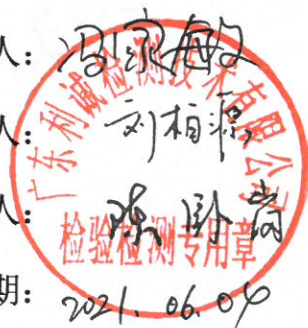 人：冯家敏
人：刘相源
人：陈卧嵩
期：2021.06.04
广东利诚检测技术有限公司
检验检测专用章